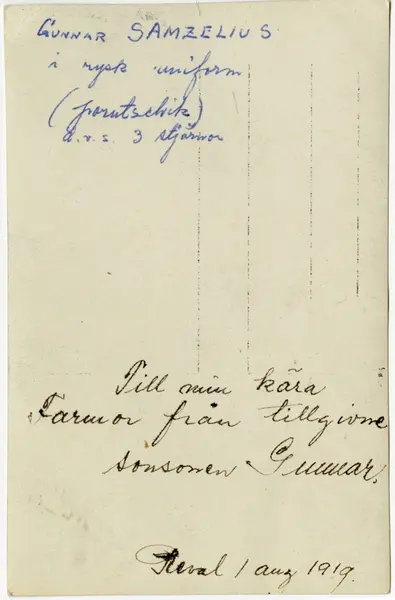 GUNNAR SAMZELIUS
i rysk uniform
(porutschik)
d.v.s. 3 stjärnor
Till min kära
Farmor från tillgivne
sonsonen Gunnar.
Reval 1 aug 1919.